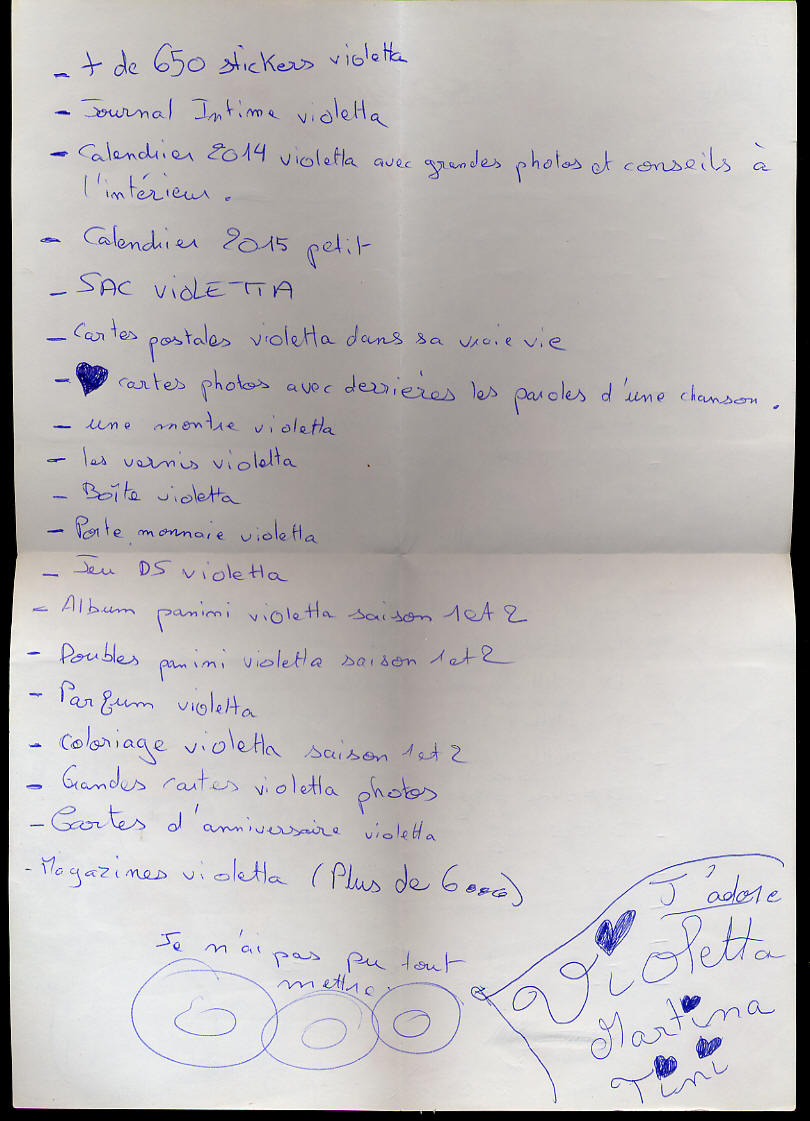 - + de 650 stickers violetta
- Journal Intime violetta
- Calendrier 2014 violetta avec grandes photos et conseils à
l'intérieur.
- Calendrier 2015 petit
- SAC VIOLETTA
- Cartes postales violetta dans sa vraie vie
- cartes photos avec derrières les paroles d'une chanson.
- une montre violetta
- les vernis violetta
- Boîte violetta
- Porte monnaie violetta
- Jeu DS violetta
- Album panini violetta saison 1 et 2
- Doubles panini violetta saison 1 et 2
- Parfum violetta
- coloriage violetta saison 1 et 2
- Grandes cartes violetta photos
- Cartes d'anniversaire violetta
- Magazines violetta (Plus de 6000)
Je n'ai pas pu tout
mettre.
J'adore
Violetta
Martina
Tini